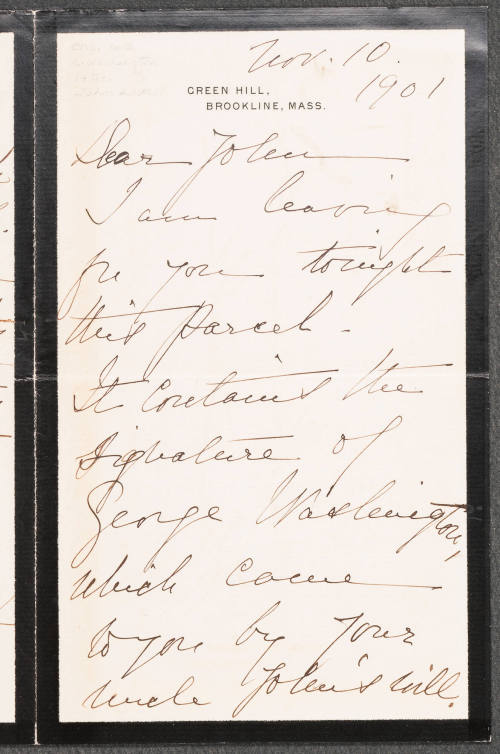 Nov. 10.
1901
GREEN HILL,
BROOKLINE, MASS.
Dear John
I am leaving
for you tonight
this parcel -
It contains the
signature of
George Washington,
which came
to you by your
uncle John's will.